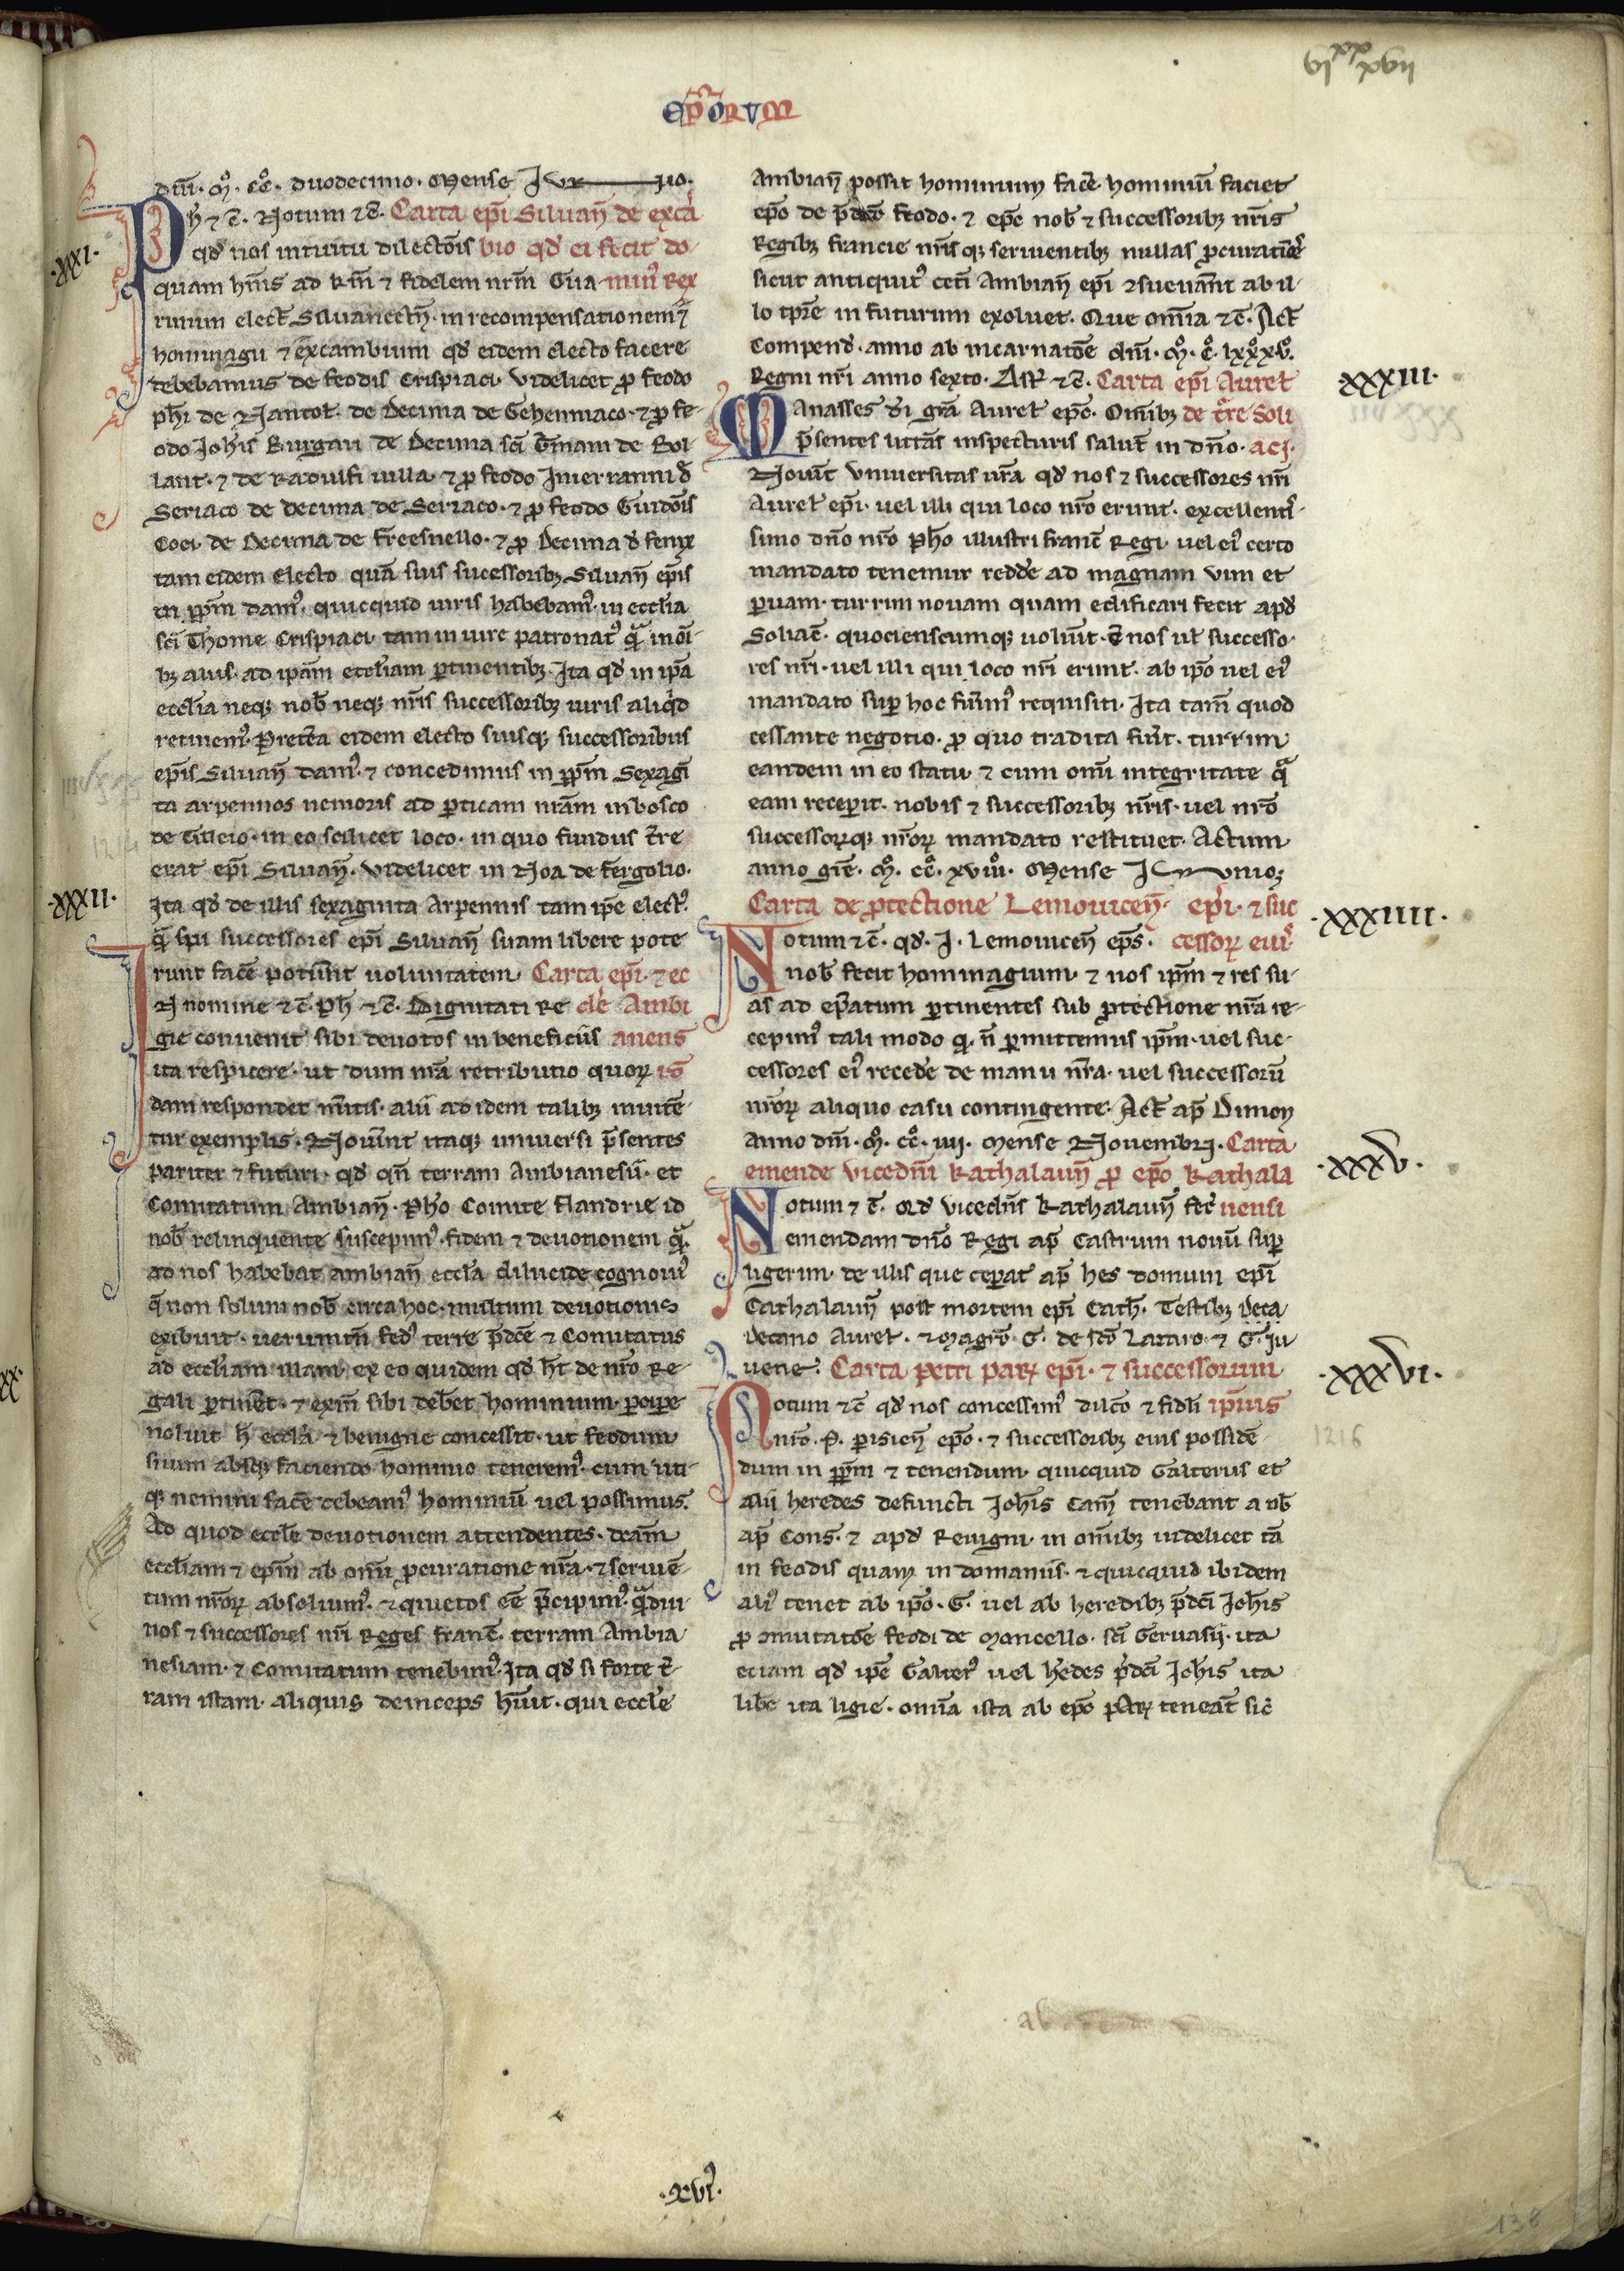 vi^xx xvii
ep̄orvm
dnī. mº. ccº. duodecimo. Mense Iunio.
Ph̄ ⁊ c̄. Notum ⁊ c̄. Carta ep̄i Siluan̄ de excā
.xxxi.
qd̄ nos intuitu dilectōis bio qd̄ ei fecit do-
quam hm̄s ad km̄ ⁊ fidelem nrm̄ Gua- min' Rex
rinum elect̄ Siluanectn̄. in recompensationem
hominagii ⁊ excambium qd̄ eidem electo facere
tebebamus de feodis Crispiaci. Videlicet ꝓ feodo
ph̄i de Nantol. de decima de Gehenniaco. ⁊ ꝓ fe-
odo Joh̄is Burgari de Decima sci Gm̄ani de Bol-
lant. ⁊ de Radulfi uilla. ⁊ ꝓ feodo Inierranni d̄
Seriaco de decima de Seriaco. ⁊ ꝓ feodo Guidōis
Coci. de Decima de freesnello. ⁊ ꝓ Decima d̄ fenix
tam eidem electo quā suis sucessoribꝫ Siluan̄ ep̄is
in ppm̄ dam'. quicquid iuris habebam'. in eccl̄ia
sci Thome Crispiaci. tam in iure patronat' qͣ in oī-
bꝫ aliis. ad ipām eccl̄iam ꝑtinentibꝫ. Ita qd̄ in ipā
eccl̄ia neqꝫ nob̄ neqꝫ nr̄is successoribꝫ iuris aliqͥd
retinem'. Pretēa eidem electo suisqꝫ successoribus
ep̄is Siluan̄ dam'. ⁊ concedimus in ppm̄ sexagī-
ta arpennos nemoris ad ꝑticam nrām in bosco
de Guseio. in eo scilicet loco. in quo fundus tr̄re
erat ep̄i Siluan̄. videlicet in Noa de fergolio.
.xxxii.
Ita qd̄ de illis sexaginta Arpennis tam ip̄e elect'.
qͣ ipi successores ep̄i Siluan̄ suam libere pote
runt facē potūnt uoluntatem Carta ep̄i. ⁊ ec
In nomine ⁊ c̄. Ph̄ ⁊ c̄. Dignitati Re cl̄e Ambi
gie conuenit sibi deuotos in beneficiis anens̄
ita respicere. ut dum nrā retributio quoꝝ
dam respondet mītis. alii ad idem talibꝫ inuitē-
tur exemplis. Nouīnt itaqꝫ uniuersi p̄sentes
pariter ⁊ futuri. qd̄ qn̄ terram Ambianesīu. et
Comitatum Ambian̄. Ph̄o Comite flandrie id
nob̄ relinquente suscepim'. fidem ⁊ deuotionem qͣ
ad nos habebat ambian̄ eccl̄a dilucide cognouim'
q̄ non solum nob̄ circa hoc. multum deuotionis
exibuit. uerumtn̄ fed' terre p̄dc̄e ⁊ Comitatus
ad eccl̄iam illam. ex eo quidem qd̄ h̄t de nr̄o Re-
gali ꝑtinēt. ⁊ exin̄ sibi debet hominium. ꝑcipe
noluit h̄ eccl̄a ⁊ benigne concessit. ut feodum
suum absqꝫ faciendo hominio tenerem'. cum uti-
qꝫ nemini facē tebeam' hominiū uel possimus.
Ad quod eccl̄e deuotionem attendentes. dcām
eccl̄iam ⁊ ep̄m ab omī ꝓcuratione nrā. ⁊ seruiē-
tum nr̄oꝝ absoluim'. ⁊ quietos eē p̄cipim'. qͣdiu
nos ⁊ successores nr̄i Reges franc̄. terram Ambia
nesiam. ⁊ Comitatum tenebim'. Ita qd̄ si forte t̄-
ram istam. aliquis deinceps h̄uit. qui eccl̄e
Ambian̄ possit hominium facē. hominiū faciet
ep̄o de p̄dc̄o feodo. ⁊ ep̄c nob̄ ⁊ successoribꝫ nr̄is
Regibꝫ francie nr̄isqꝫ seruientibꝫ nullas ꝓcuratiōes
sicut antiquit' ceti Ambian̄ ep̄i ꝯsueuānt ab il-
lo tp̄re in futurum exoluet. Que omīa ⁊ c̄. Act̄
Compend̄. anno ab incarnatōe dn̄i. mº. cº. lxxxvº.
Regni nr̄i anno sexto. Ast̄ ⁊ c̄. Carta ep̄i Aurel̄
.xxxiii.
Manasses di grā Aurel̄ ep̄c. Omībꝫ de tr̄re Soli
p̄sentes litt̄as inspecturis salut̄ in dn̄o. aci.
Nouīt vniuersitas nrā qd̄ nos ⁊ successores nr̄i
Aurel̄ ep̄i. uel illi qui loco nr̄o erunt. excellenti-
simo dn̄o nr̄o Ph̄o illustri franc̄ Regi. uel ei' certo
mandato tenemur reddē ad magnam vim et
ꝑuam. turrim nouam quam edificari fecit apd̄
Soliac̄. quocienscumqꝫ uoluīt. ⁊ nos ul̄ successo-
res nr̄i. uel illi qui loco nr̄i erunt. ab ipō uel ei'
mandato suꝑ hoc fuīm' requisiti. Ita tam̄ quod
cessante negotio. ꝓ quo tradita fuīt. turrim
eandem in eo statu ⁊ cum omī integritate qͣ
eam receꝑit. nobis ⁊ successoribꝫ nr̄is. uel nr̄o
successoꝝqꝫ nr̄oꝝ mandato restituet. Actum
anno gr̄e. mº. ccº. xviiiº. Mense Iunio.
Carta de ꝓtectione Lemouicen̄. ep̄i. ⁊ suc
.xxxiiii.
Notum ⁊ c̄. qd̄. J. Lemouicen̄ ep̄s. cessoꝝ eius.
nob̄ fecit hominagium. ⁊ nos ip̄m ⁊ res su-
as ad ep̄atum ꝑtinentes sub ꝓtectione nrā re-
cepim' tali modo q. n̄ ꝑmittemus ip̄m. uel suc-
cessores ei' recedē de manu nr̄a. uel successorū
nr̄oꝝ aliquo casu contingente. Act̄ ap̄ Dimon
anno dn̄i. mº. ccº. iiij. Mense Nouembri. Carta
.xxxv.
emende vicedn̄i kathalaun̄ ꝓ ep̄o kathala
Notum ⁊ c̄. Qd̄ vicedn̄s kathalaun̄ fec̄ nensi
emendam dn̄o Regi ap̄ Castrum nouū suꝑ
ligerim. de illis que ceꝑat ap̄ hes domum ep̄i
Cathalaun̄ post mortem ep̄i Cath̄. Testibꝫ deca
Decano Aurel̄. ⁊ magr̄o G. de sc̄o Lazaro. ⁊ G. iu
.xxxvi.
uene. Carta petri parꝝ ep̄i. ⁊ successorum
Notum ⁊ c̄ qd̄ nos concessim' dilc̄o ⁊ fidl̄i ip̄ius
1216
nr̄o. P. ꝑisien̄ ep̄o. ⁊ successoribꝫ eius possidē-
dum in ppm̄ ⁊ tenendum. quicquid Galterus et
alii heredes defuncti Joh̄is Cam̄ tenebant a nb̄
ap̄ Cons. ⁊ apd̄ Reuigni. in omībꝫ uidelicet tā
in feodis quam in domaniis. ⁊ quicquid ibidem
ali' tenet ab ipō. G. uel ab heredibꝫ p̄dc̄i Joh̄is
ꝓ mutatōe feodi de Moncello. sci Geruasij. ita
etiam qd̄ ip̄e Galter' uel h̄edes p̄dc̄i Joh̄is ita
libē ita ligie. omīa ista ab ep̄o parꝝ teneāt sic̄
.xvi.
138